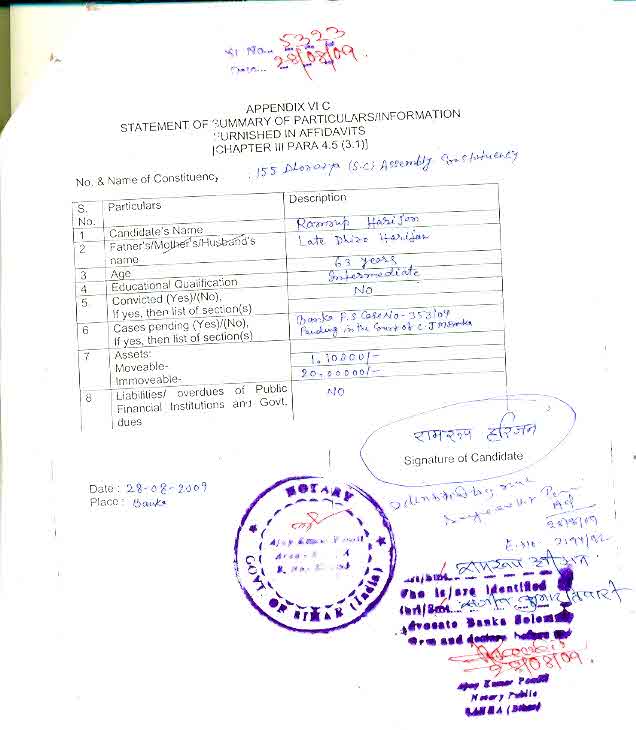 Sl No. 5323
Date... 28/08/09
APPENDIX VI C
STATEMENT OF SUMMARY OF PARTICULARS/INFORMATION
FURNISHED IN AFFIDAVITS
[CHAPTER III PARA 4.5 (3.1)]
No. & Name of Constituency 155 Dhoraiya (S.C) Assembly Constituency
S. No. Particulars Description
1 Candidate's Name Ramrup Harijan
2 Father's/Mother's/Husband's name Late Dhiro Harijan
3 Age 63 years
4 Educational Qualification Intermediate
5 Convicted (Yes)/(No), If yes, then list of section(s) No
6 Cases pending (Yes)/(No), If yes, then list of section(s) Banka P.S Case No- 353/04
Pending in the Court of C.J.M Banka
7 Assets:
Moveable- 1.10800/-
Immoveable- 20.00000/-
8 Liabilities/ overdues of Public Financial Institutions and Govt. dues NO
रामरूप हरिजन
Signature of Candidate
Date : 28-08-2009
Place : Banka
NOTARY
GOVT OF BIHAR (India)
28/8/09
रामरूप हरिजन
Who is/are identified
Advocate Banka Solemn
28/08/09
Ajay Kumar
Notary Public
BANKA (Bihar)